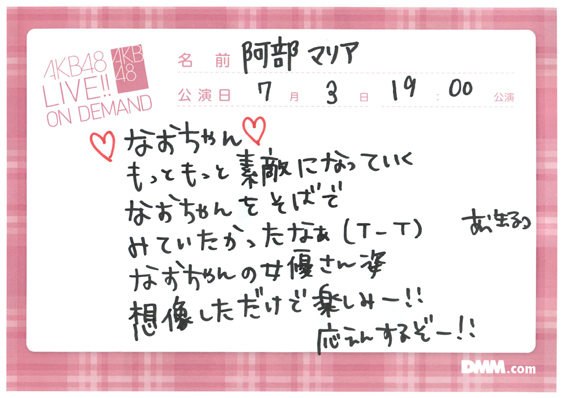 AKB48
LIVE!!
ON DEMAND
AKB
48
名 前 阿部 マリア
公演日 7 月 3 日 19 : 00 公演
♡なおちゃん♡
もっともっと素敵になっていく
なおちゃんをそばで
みていたかったなぁ(T-T)
なおちゃんの女優さん姿
想像しただけで楽しみー!!
応えんするぞー!!
DMM.com